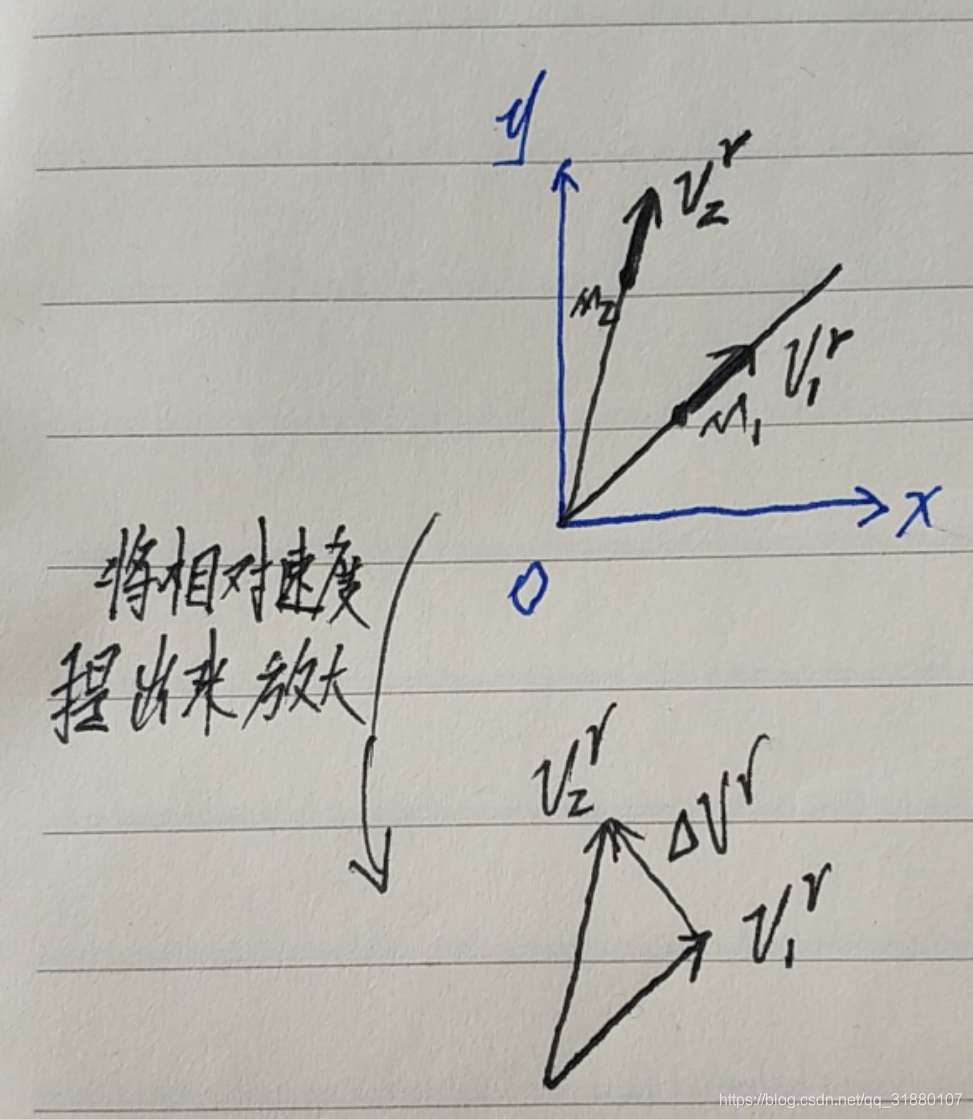 y
V₂ʳ
M₂
V₁ʳ
M₁
x
O
将相对速度
提出来放大
V₂ʳ
ΔVʳ
V₁ʳ
https://blog.csdn.net/qq_31880107